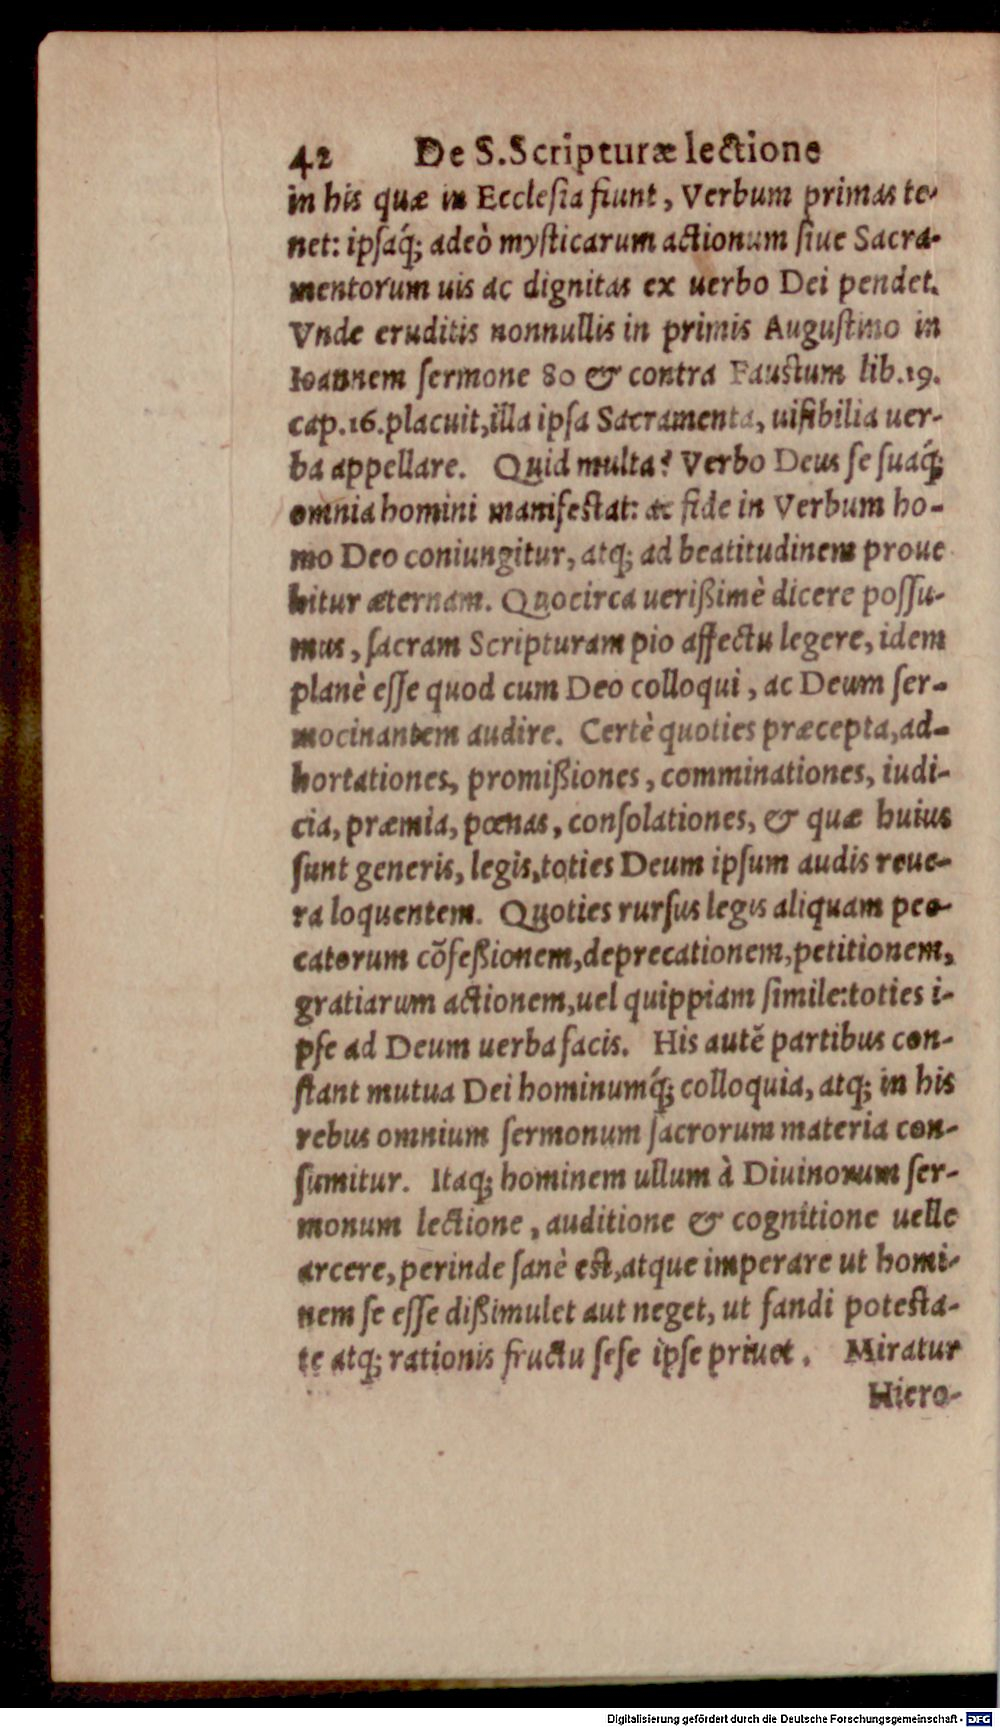 42 De S. Scripturæ lectione
in his quæ in Ecclesia fiunt, Verbum primas te-
net: ipsaq́; adeò mysticarum actionum siue Sacra-
mentorum uis ac dignitas ex uerbo Dei pendet.
Vnde eruditis nonnullis in primis Augustino in
Ioannem sermone 80 & contra Faustum lib.19.
cap.16. placuit, illa ipsa Sacramenta, uisibilia uer-
ba appellare. Quid multa? Verbo Deus se suaq́;
omnia homini manifestat: ac fide in Verbum ho-
mo Deo coniungitur, atq; ad beatitudinem proue
hitur æternam. Quocirca uerißimè dicere possu-
mus, sacram Scripturam pio affectu legere, idem
planè esse quod cum Deo colloqui, ac Deum ser-
mocinantem audire. Certè quoties præcepta, ad-
hortationes, promißiones, comminationes, iudi-
cia, præmia, pœnas, consolationes, & quæ huius
sunt generis, legis, toties Deum ipsum audis reue-
ra loquentem. Quoties rursus legis aliquam pec-
catorum cõfeßionem, deprecationem, petitionem,
gratiarum actionem, uel quippiam simile: toties i-
pse ad Deum uerba facis. His autẽ partibus con-
stant mutua Dei hominumq́; colloquia, atq; in his
rebus omnium sermonum sacrorum materia con-
sumitur. Itaq; hominem ullum à Diuinorum ser-
monum lectione, auditione & cognitione uelle
arcere, perinde sanè est, atque imperare ut homi-
nem se esse dißimulet aut neget, ut fandi potesta-
te atq; rationis fructu sese ipse priuet. Miratur
Hiero-
Digitalisierung gefördert durch die Deutsche Forschungsgemeinschaft - DFG